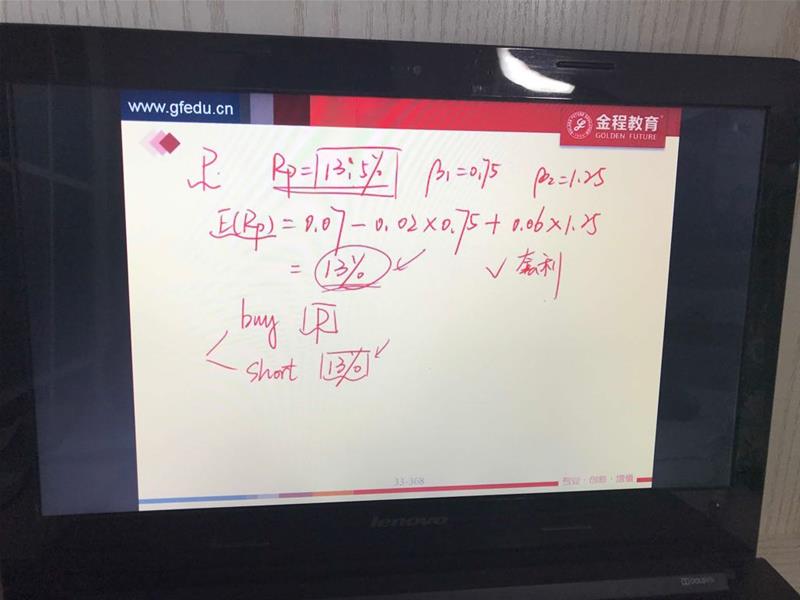 www.gfedu.cn
金程教育
GOLDEN FUTURE
P. Rp = 13.5% β1=0.75 β2=1.25
E(Rp) = 0.07 - 0.02×0.75 + 0.06×1.25
= 13% ✓ 套利
buy P
short 13%
33-368
专业·创新·增值
lenovo
DOLBY